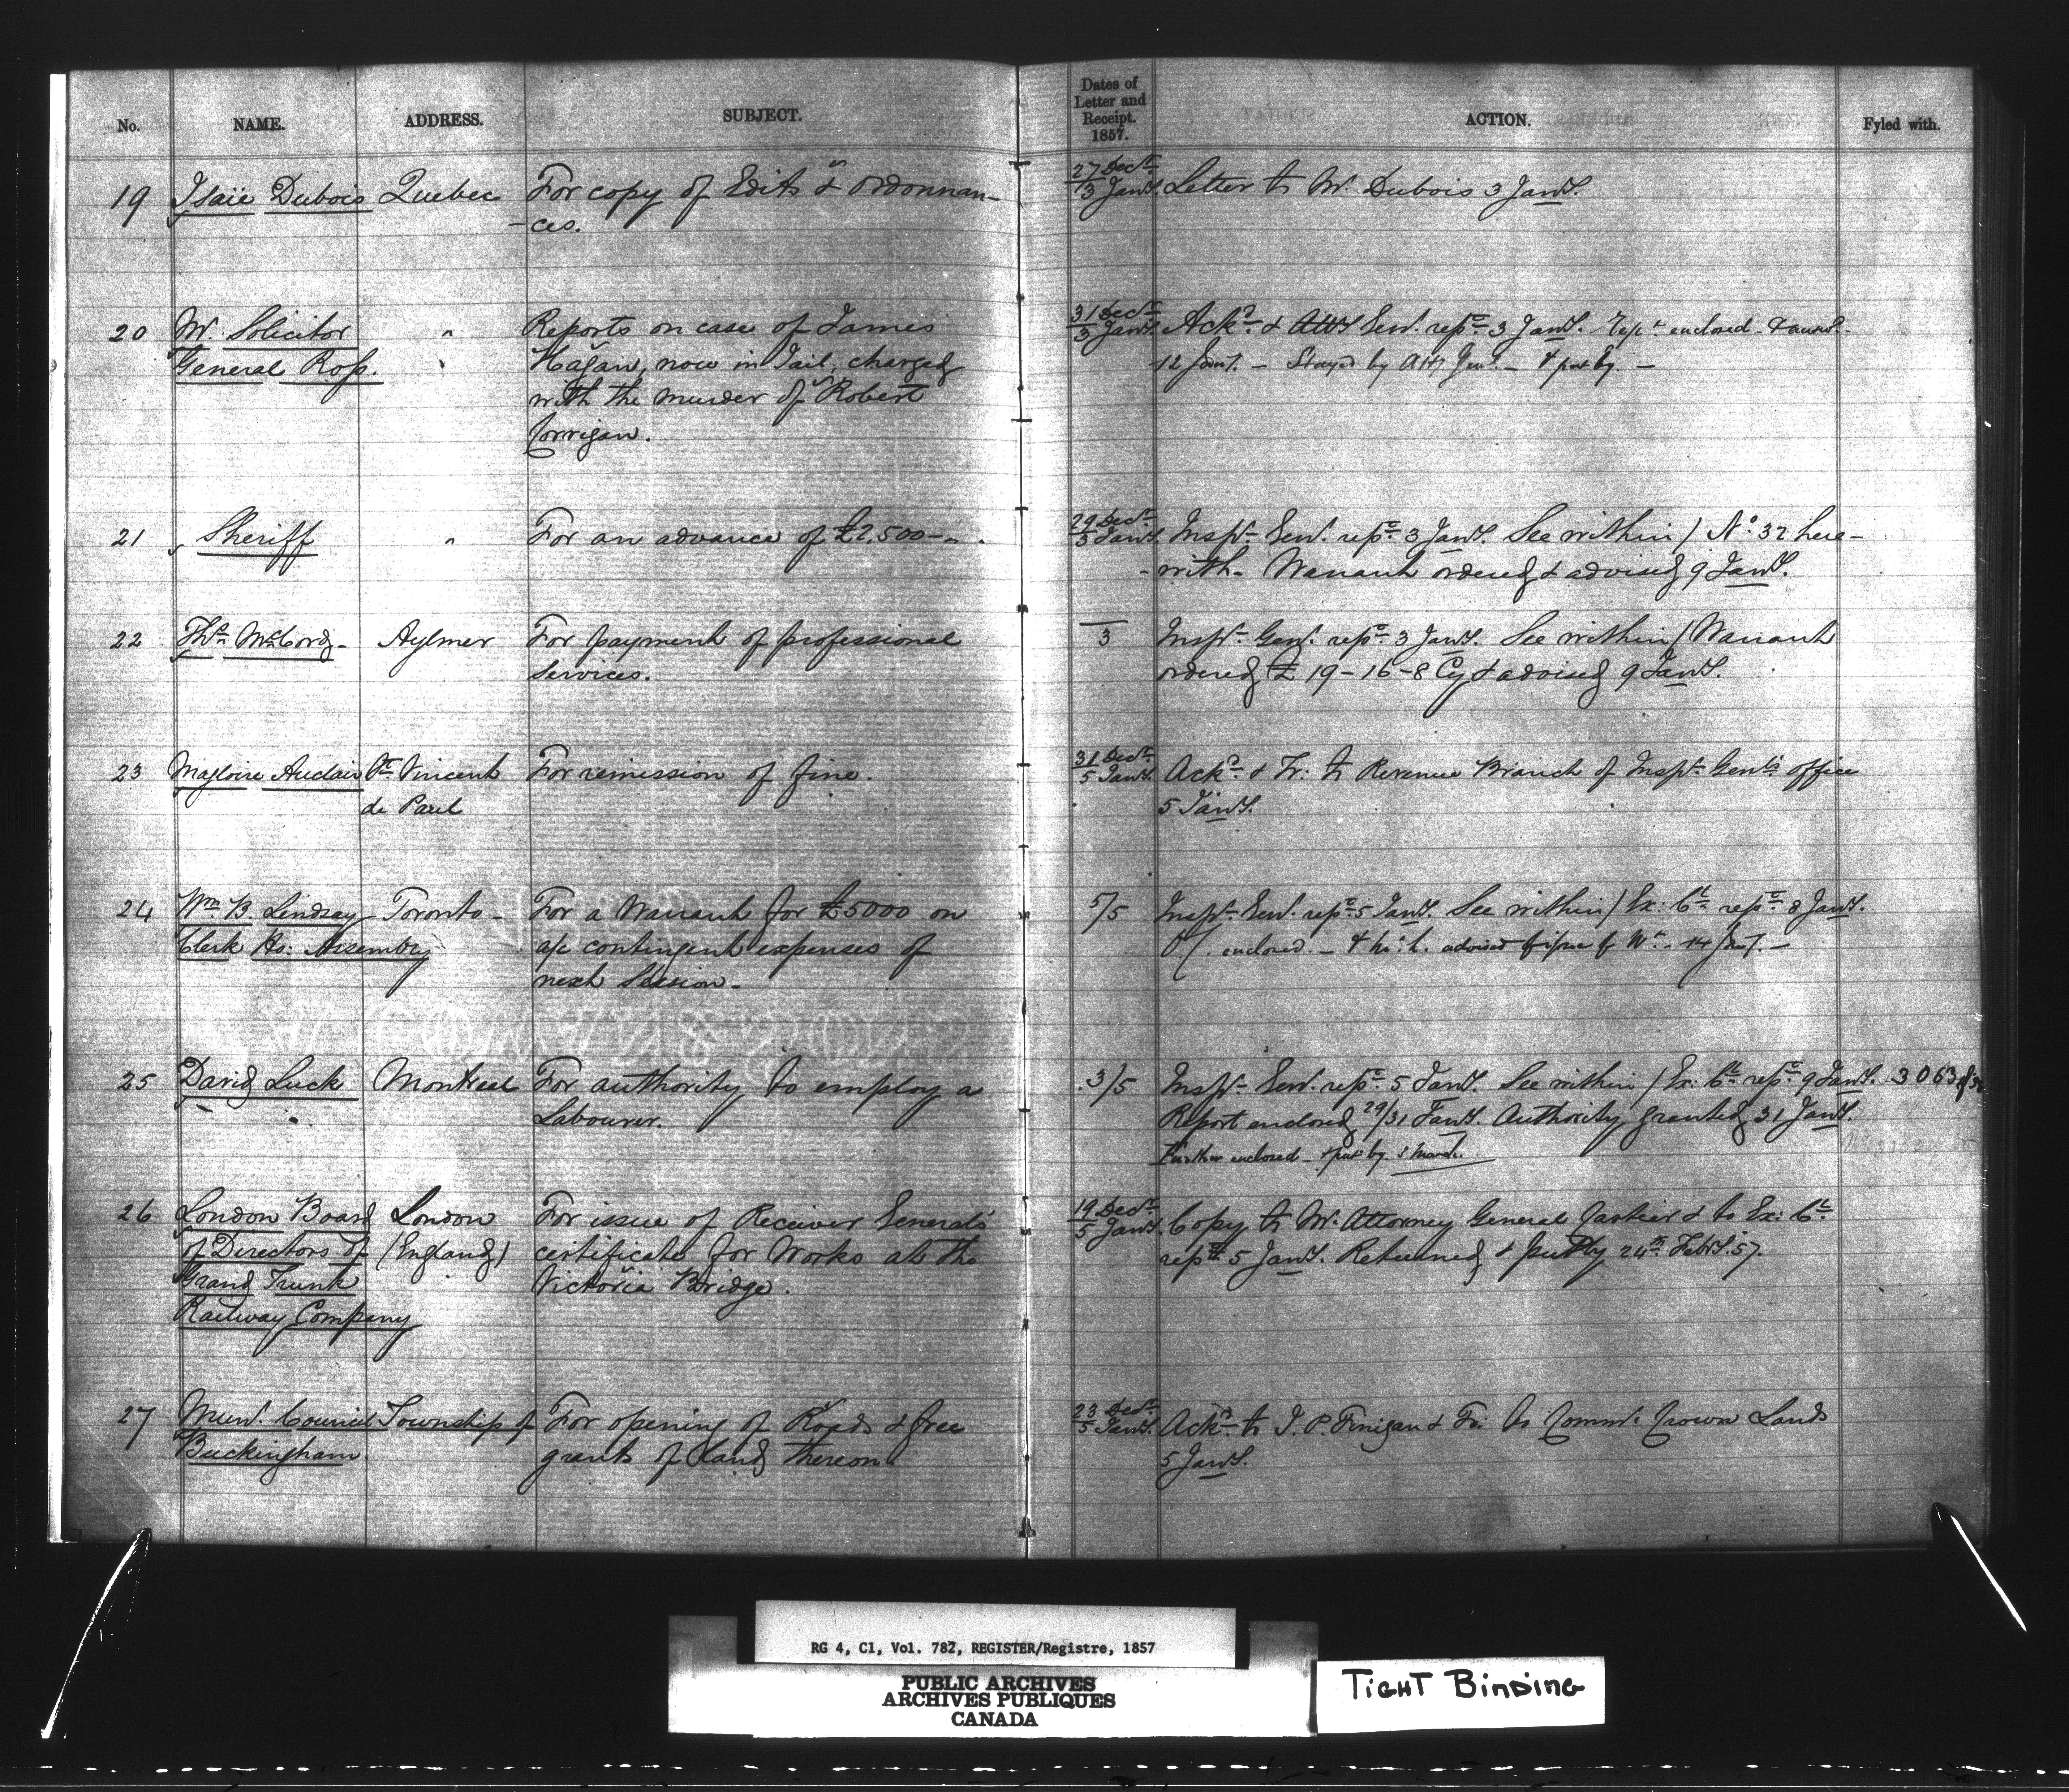 No. NAME. ADDRESS. SUBJECT. Dates of Letter and Receipt. 1857. ACTION. Fyled with.
19 Isaïe Dubois Quebec For copy of Edits & Ordonnan- 27 Decr. / 3 Jany. Letter to Mr. Dubois 3 Jany.
-ces.
20 Mr. Solicitor " Reports on case of James 31 Decr. / 3 Jany. Ackd. & Genl. repd. 3 Jany. Rept. enclosed
General Ross. " Hagan, now in Jail, charged 12 Jany. - Stayed by Atty Genl. - & put by -
with the murder of Robert
Corrigan.
21 Sheriff " For an advance of £2,500 - 29 Decr. / 3 Jany. Inspr. Genl. repd. 3 Jany. See within / No. 32 here-
-with. Warrant ordered & advised 9 Jany.
22 Ths. McCord - Aylmer For payment of professional 3 Inspr. Genl. repd. 3 Jany. See within / Warrant
services. ordered £ 19-16-8 Cy & advised 9 Jany.
23 Magloire Auclair St. Vincent For remission of fine. 31 Decr. / 5 Jany. Ackd. & Tr: to Revenue Branch of Inspr. Genl's office
de Paul 5 Jany.
24 Wm. B. Lindsay Toronto - For a Warrant for £5000 on 5/5 Inspr. Genl. repd. 5 Jany. See within / Ex: Cl. repd. 8 Jany.
Clerk Ho: Assembly a/c contingent expenses of enclosed. - & advised of issue of Wt. - 14 Jany. -
next Session.
25 David Luck Montreal For authority to employ a 3/5 Inspr. Genl. repd. 5 Jany. See within / Ex: Cl. repd. 9 Jany. 3063
Labourer. Report enclosed 29/31 Jany. Authority granted 31 Jany.
Further enclosed - & put by. 3 March.
26 London Board London For issue of Receiver General's 19 Decr. / 5 Jany. Copy to Mr. Attorney General Cartier & to Ex: Cl.
of Directors of (England) certificate for Works at the repd. 5 Jany. Returned & put by 24th. Feby. 57.
Grand Trunk Victoria Bridge.
Railway Company
27 Munl. Council Township of For opening of Roads & free 23 Decr. / 5 Jany. Ackd. to J. P. Finigan & Tr: to Commr. Crown Lands
Buckingham. grants of land thereon. 5 Jany.
RG 4, C1, Vol. 782, REGISTER/Registre, 1857
PUBLIC ARCHIVES
ARCHIVES PUBLIQUES
CANADA
TIGHT BINDING